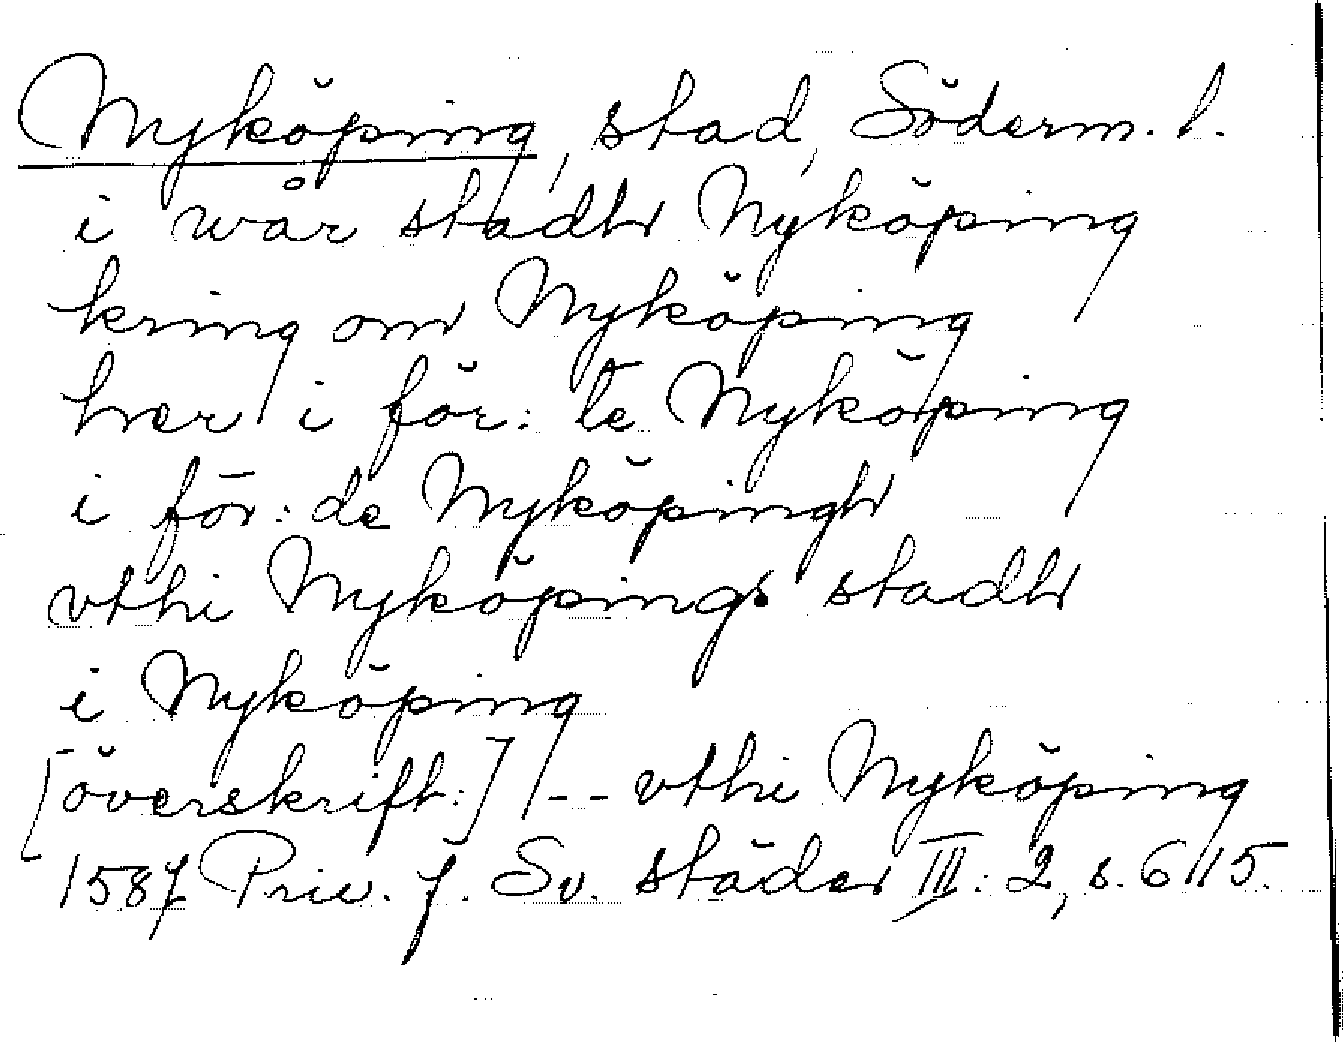 Nyköping, stad, Söderm. l.
i wår stadh Nyköping
kring om Nyköping
hær i för: te Nyköping
i för: de Nyköpingh
vthi Nyköpings stadh
i Nyköping
[överskrift:] -- vthi Nyköping
1587 Priv. f. Sv. städer III: 2, s. 615.